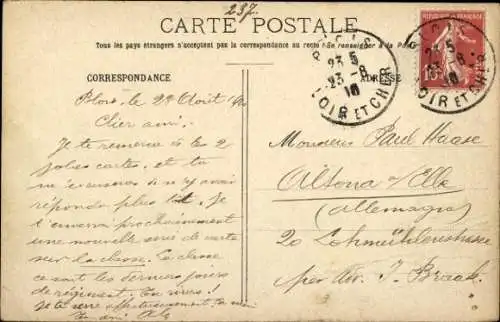 237
CARTE POSTALE
Tous les pays étrangers n'acceptent pas la correspondance au recto (Se renseigner à la Poste)
CORRESPONDANCE
ADRESSE
BLOIS
23 5
23 - 8
10
LOIR ET CHER
REPUBLIQUE FRANCAISE
10
Blois, le 2 Août
Cher ami.
Je te remercie de 2
jolies cartes, et tu
m'excuseras si n'y avoir
répondu plus tôt. Je
t'enverrai prochainement
une nouvelle série de carte
sur la classe. La classe
ce sont les derniers jours
de régiment.
Je te serre affectueusement la main
Ton ami
Monsieur Paul Haase
Altona a/Elbe
(Allemagne)
20 Lohmühlenstrasse
per Adr. J. Braak.